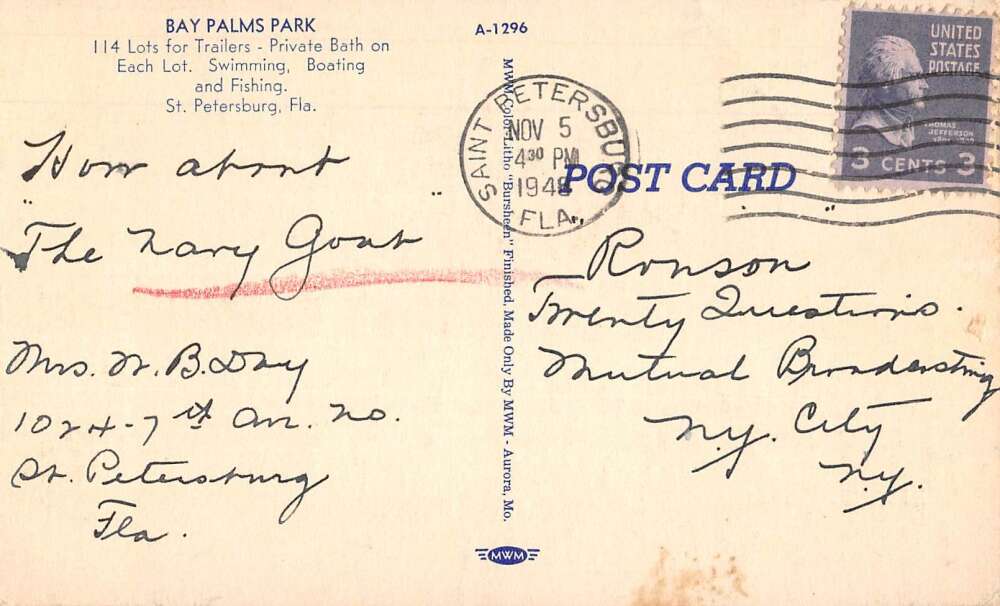 BAY PALMS PARK
114 Lots for Trailers - Private Bath on
Each Lot. Swimming, Boating
and Fishing.
St. Petersburg, Fla.
How about
"The Navy Goat"
Mrs. W. B. Day
1024-7th Av. No.
St. Petersburg
Fla.
A-1296
MWM Color-Litho "Bursheen" Finished, Made Only By MWM - Aurora, Mo.
MWM
SAINT PETERSBURG
NOV 5
430 PM
1948
FLA.
POST CARD
UNITED
STATES
POSTAGE
THOMAS
JEFFERSON
3 CENTS 3
Ronson
Twenty Questions.
Mutual Broadcasting
N.Y. City
N.Y.